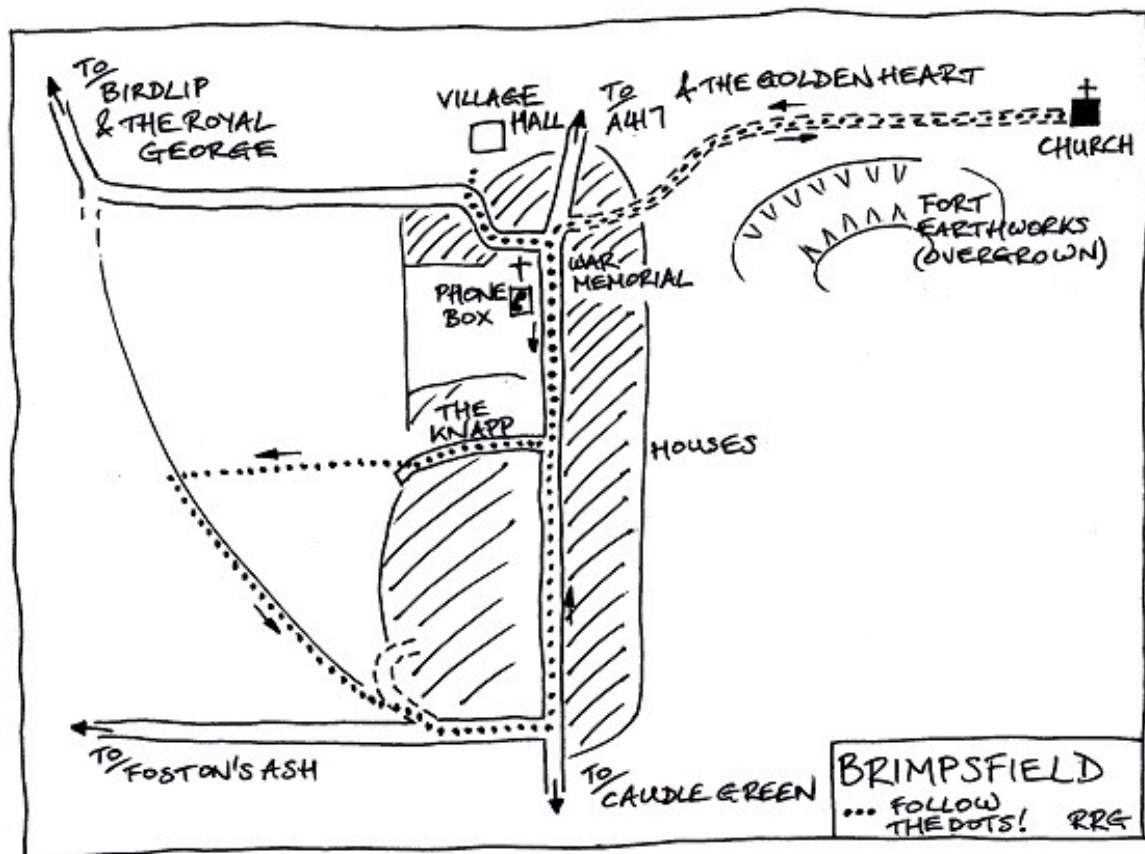 TO
BIRDLIP
& THE ROYAL
GEORGE
VILLAGE
HALL
TO
A417
& THE GOLDEN HEART
CHURCH
FORT
EARTHWORKS
(OVERGROWN)
WAR
MEMORIAL
PHONE
BOX
THE
KNAPP
HOUSES
TO
FOSTON'S ASH
TO
CAUDLE GREEN
BRIMPSFIELD
... FOLLOW
THE DOTS! RRG